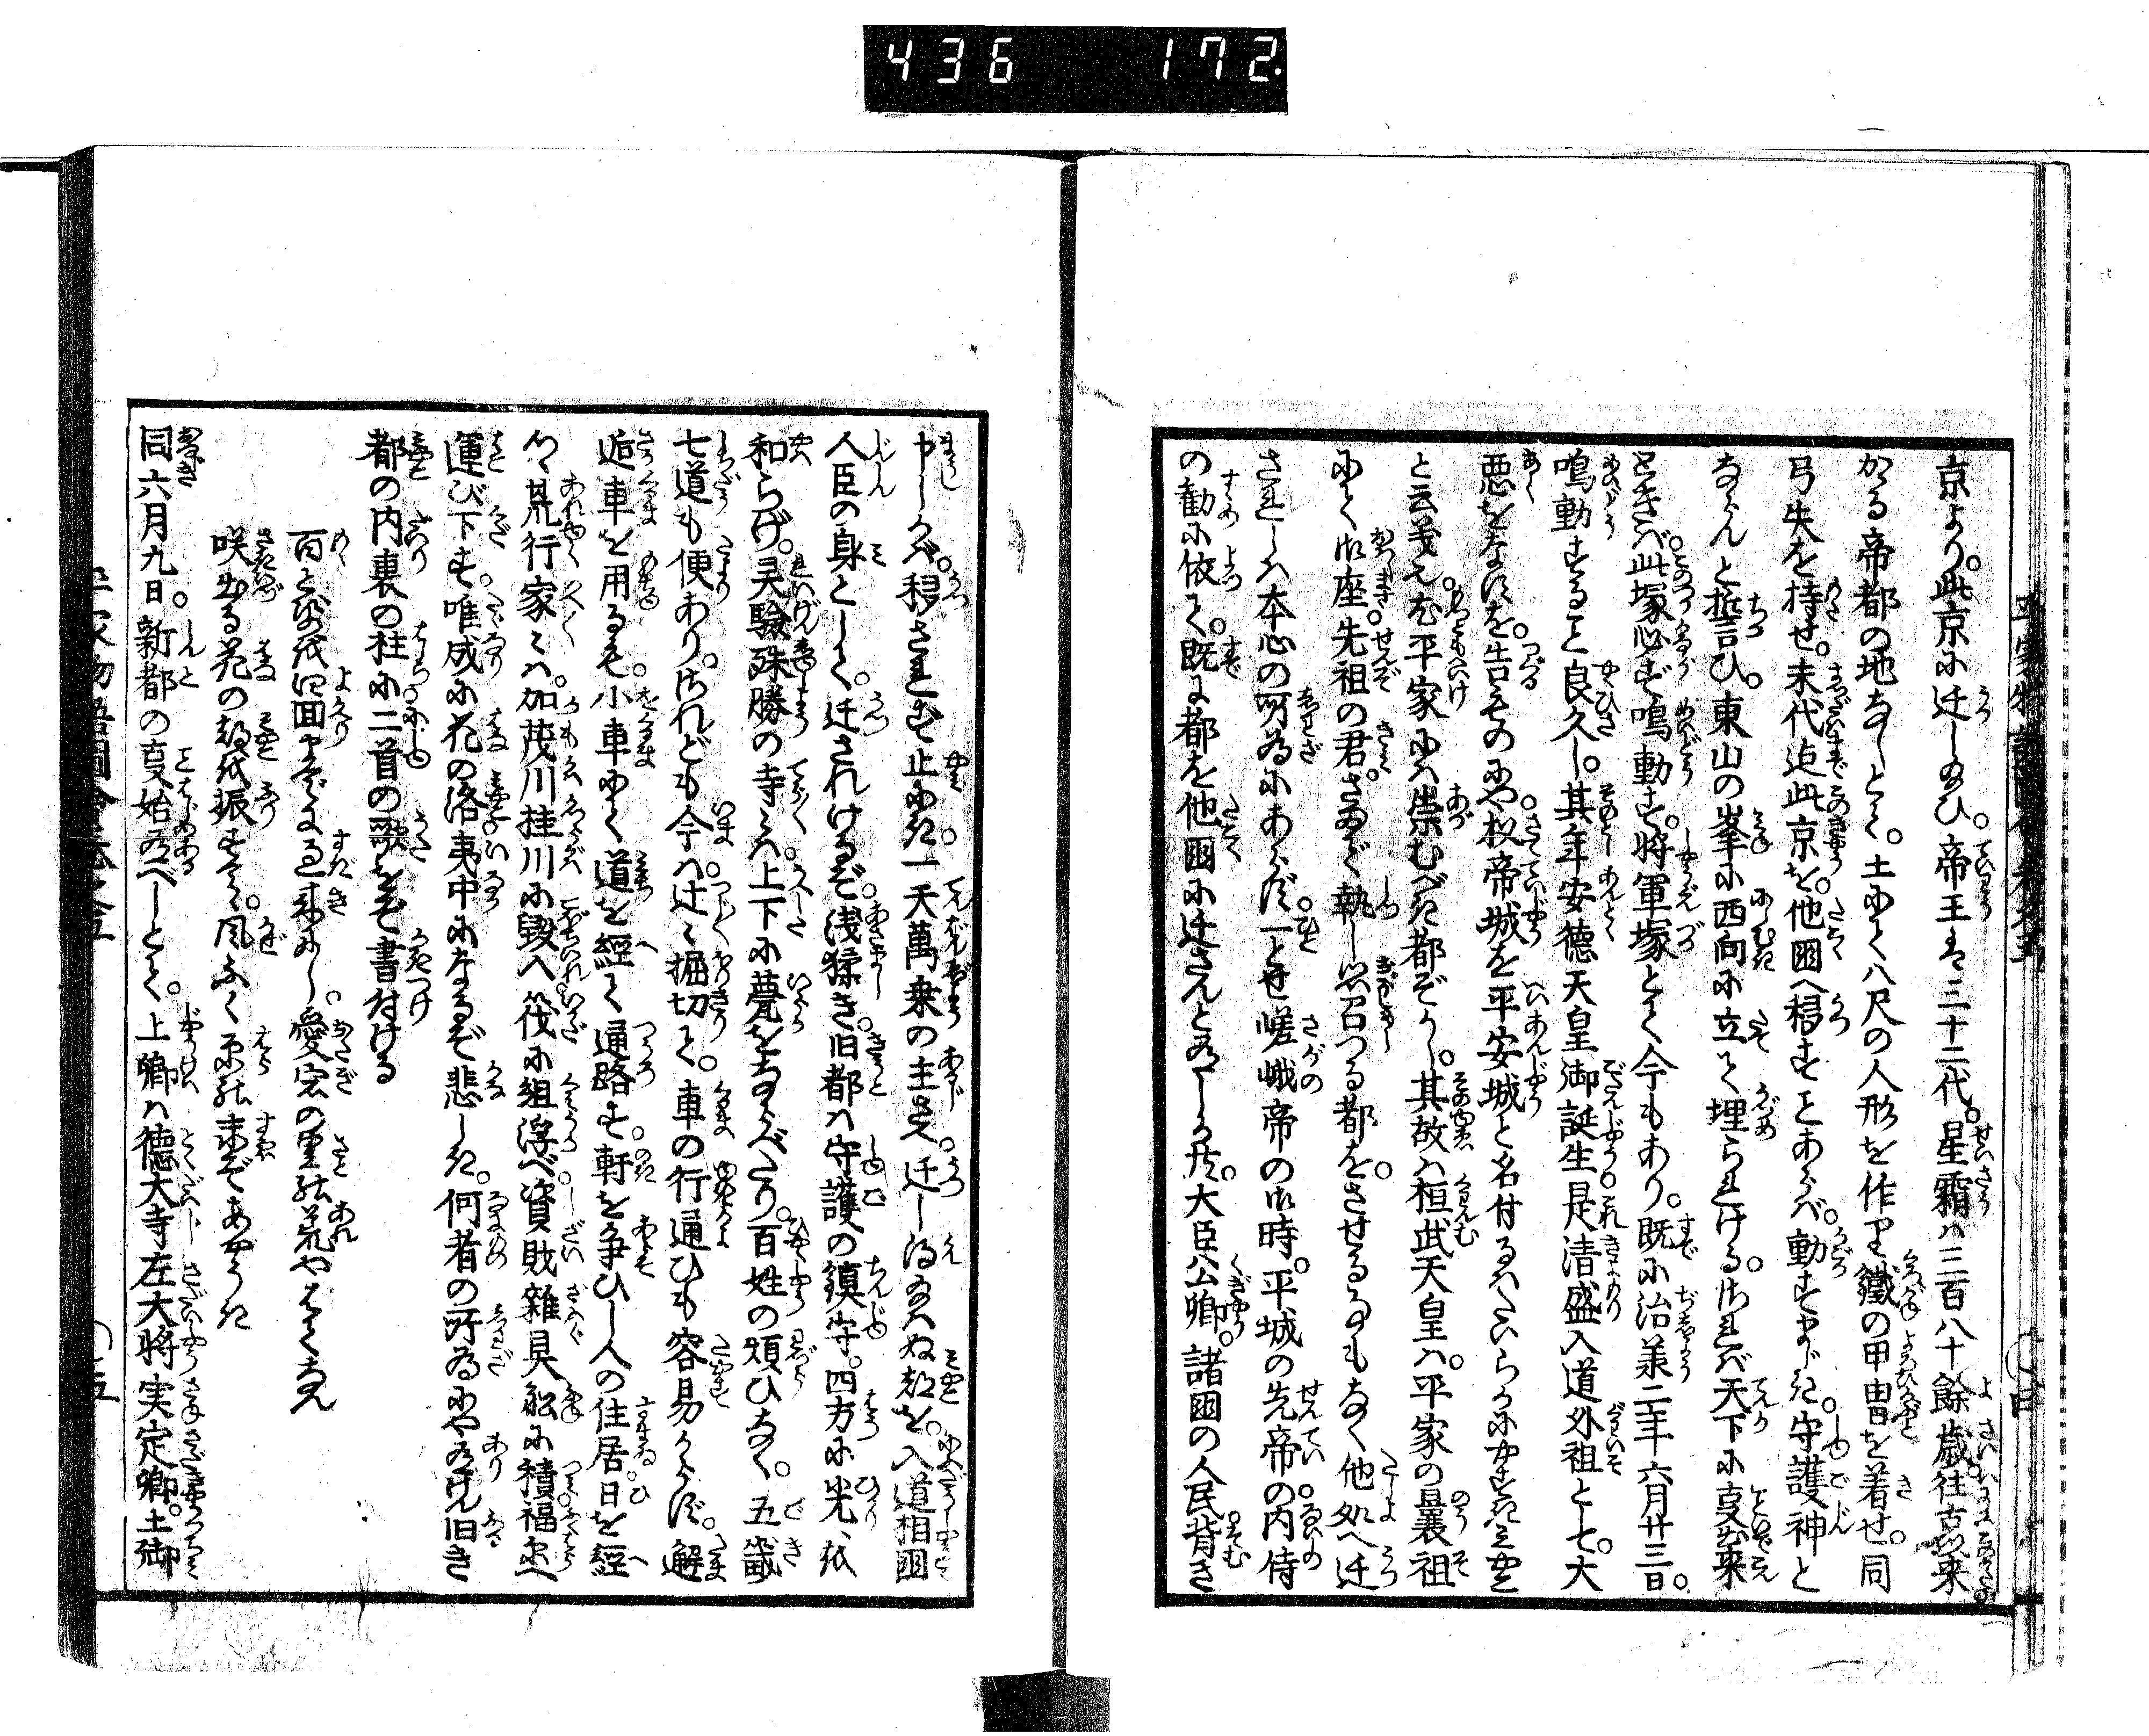 436 172.
京より。此京に迁し給ひ。帝王は三十二代。星霜は三百八十餘歳。往古以来
かゝる帝都の地なしとて。土にて八尺の人形を作り鐵の甲冑を着せ。同
弓矢を持せ。末代迄此京を。他國へ移すことあらば。動ずまじき。守護神と
ならんと誓言ひ。東山の峯に西向に立て埋られける。されば天下に变出来
ときは。此塚必ず鳴動す。将軍塚とて今もあり。既に治羕二年六月廿三日。
鳴動すること良久し。其年安徳天皇御誕生是清盛入道外祖として。大
悪をなすを。告るものにや。扨帝城を平安城と名付るは。たいらかにやすきみやこ
と云義也。尤平家には崇むべき都ぞかし。其故は桓武天皇は。平家の曩祖
にて御座。先祖の君。さまで執し思召つる都を。させる事もなく他処へ迁
されしは本心の所為にあらず。一とせ嵯峨帝の御時。平城の先帝の内侍
の勧に依て。既に都を他國に迁さんと為しか共。大臣公卿。諸國の人民背き
申しかば。移されずして止にき。一天萬乗の主さへ。迁し得給はぬ都を。入道相國
人臣の身として。迁されけるぞ。浅猿き。旧都は守護の鎮守。四方に光を
和らげ。灵驗殊勝の寺々は上下に甍をならべたり。百姓の煩ひなく。五畿
七道も便あり。されども今は。辻々掘切て。車の行通ひも容易からず。解
近車を用るも。小車にて道を經て通路す。軒を争ひし人の住居日を經
つゝ荒行。家々は。加茂川桂川に毀入。筏に組浮べ。資財雑具舩に積福原へ
運び下す。唯成に花の洛夷中になるぞ悲しき。何者の所為にや為けん旧き
都の内裏の柱に二首の歌をぞ書付ける
百とせを四囬までに過来にし。愛宕の里の荒やはてなん
咲出る花の都を振すてゝ。風ふく原の末ぞあやうき
同六月九日。新都の变始為べしとて。上卿は徳大寺左大将実定卿。土御